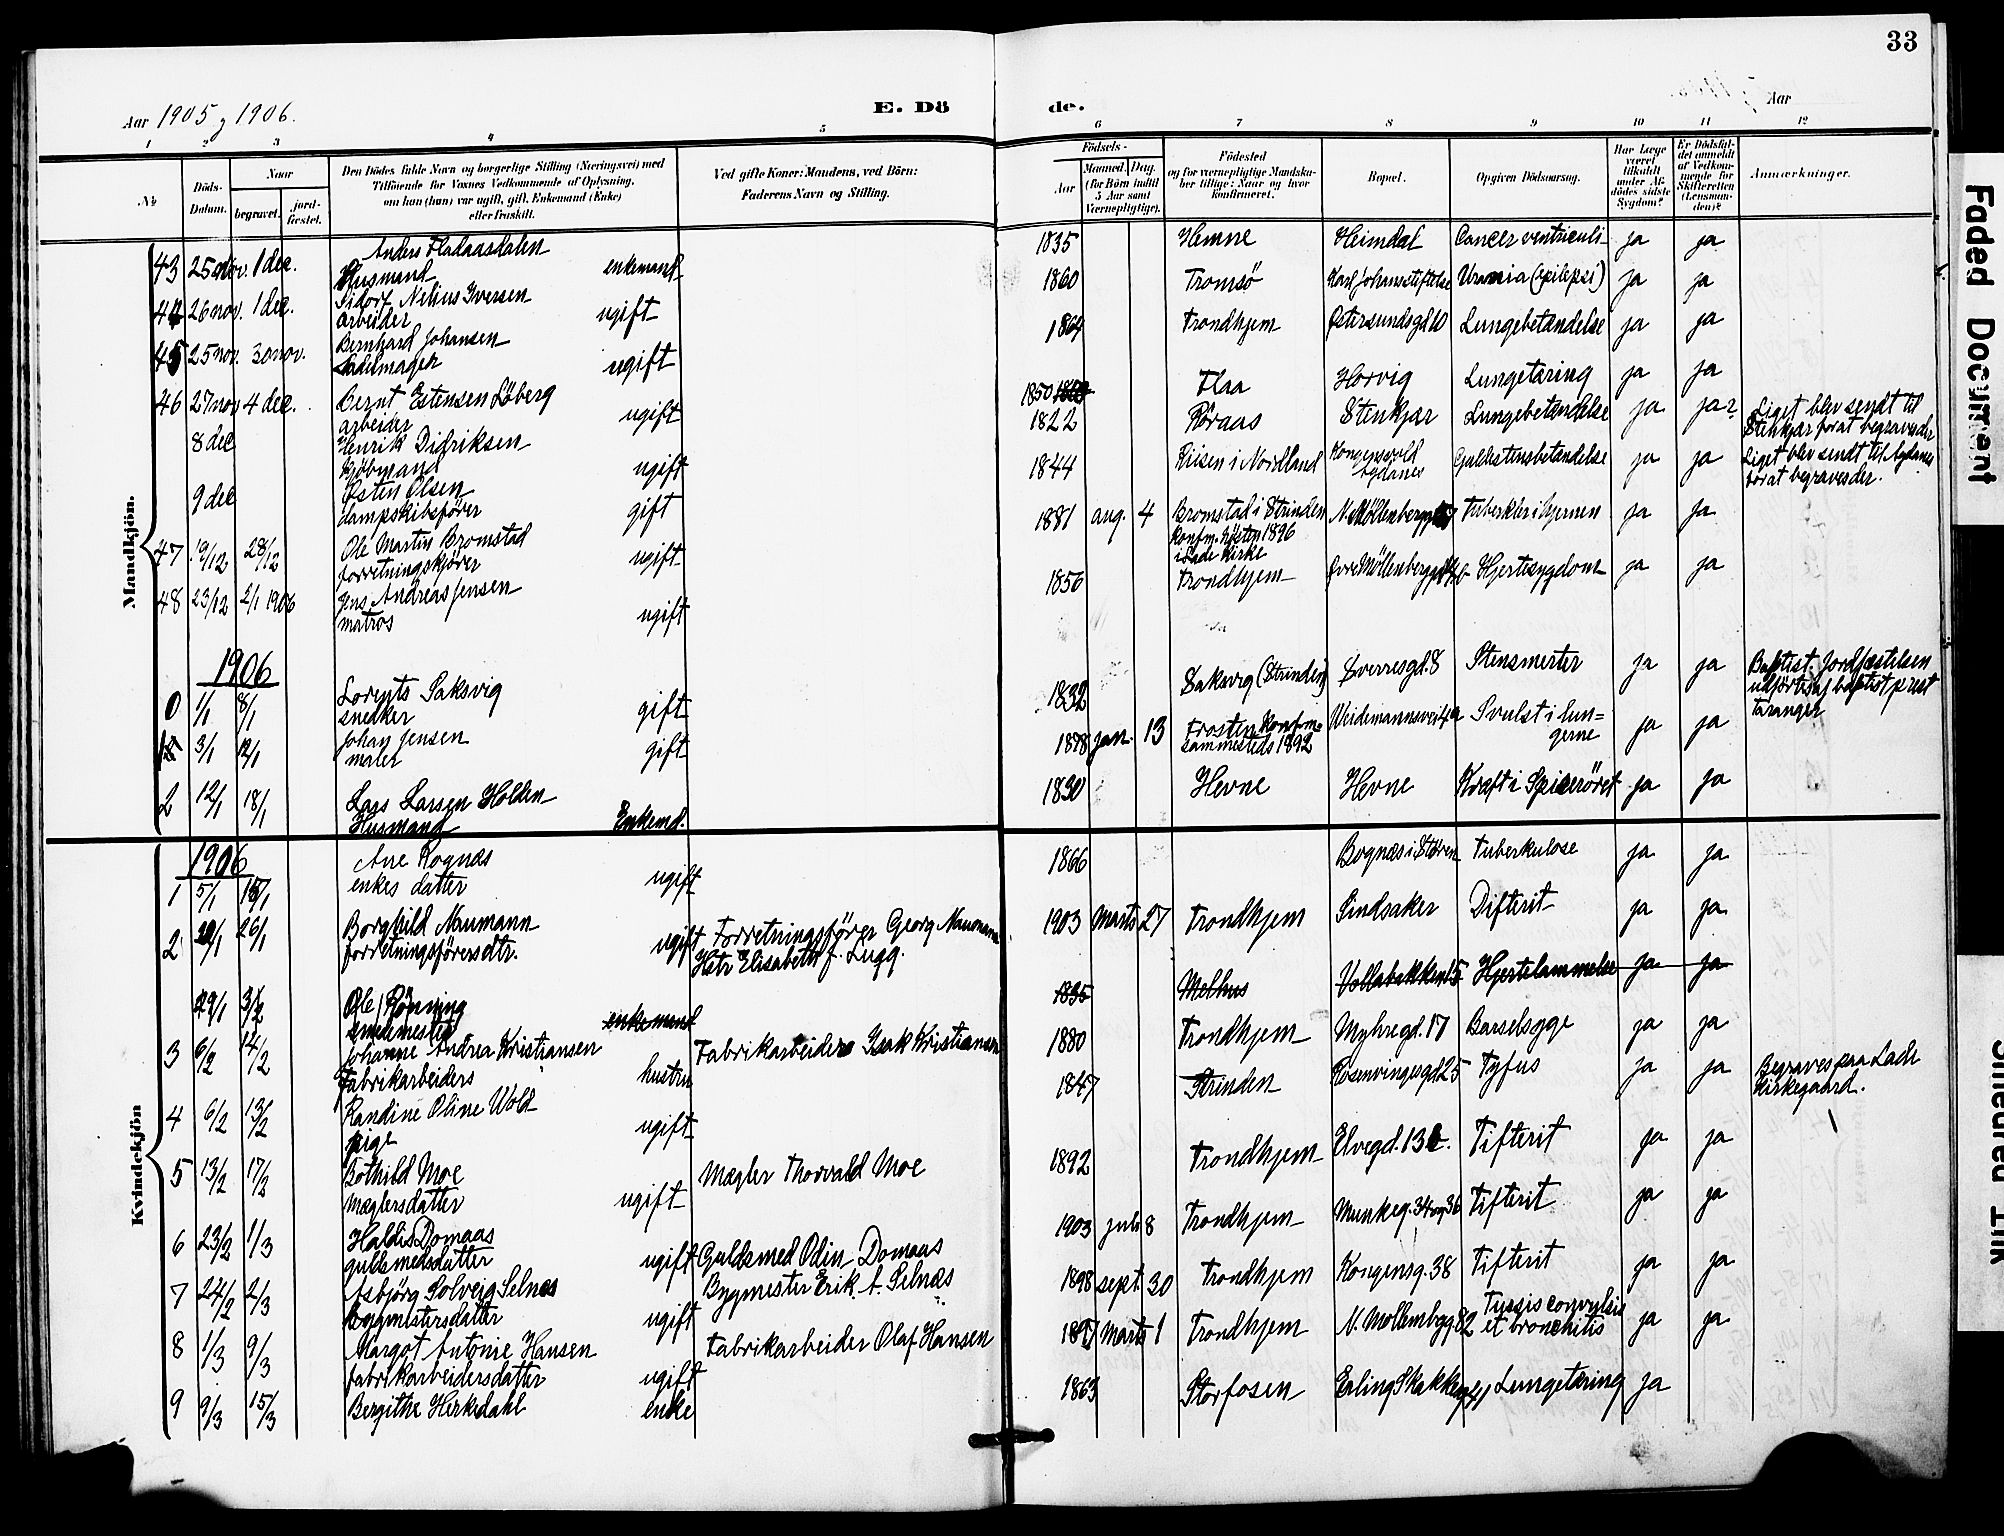 33
Aar 1905 & 1906.
E. Dö
de.
Aar
1 2 3 4 5 6 7 8 9 10 11 12
№
Döds-Datum.
Naar
begravet.
jord-fæstet.
Den Dödes fulde Navn og borgerlige Stilling (Næringsvei) med
Tilföiende for Voxnes Vedkommende af Oplysning,
om han (hun) var ugift, gift, Enkemand (Enke)
eller fraskilt.
Ved gifte Koner: Mandens, ved Börn:
Faderens Navn og Stilling.
Födsels-
Aar
Maaned. Dag.
(for Börn indtil
5 Aar samt
Værnepligtige).
Födested
og for værnepligtige Mandska-
ber tillige: Naar og hvor
konfirmeret.
Bopæl.
Opgiven Dödsaarsag.
Har Læge
været
tilkaldt
under Af-
dödes sidste
Sygdom?
Er Dödsfal-
det anmeldt
af Vedkom-
mende for
Skifteretten
(Lensman-
den)?
Anmærkninger.
Mandkjön.
43 25 nov. 1 dec. Anders Fladaasdalen 1835 Hemne Heimdal Cancer ventriculi ja ja
Husmand enkemand
44 26 nov. 1 dec. Sidorf Nelius Iversen 1860 Tromsö Karl Johansstiftelse Uræmia (epilepsi) ja ja
arbeider ugift
45 25 nov. 30 nov. Bernhard Johansen 1864 Trondhjem Østersundsgd 10 Lungebetændelse ja ja
Sadelmager ugift
46 27 nov 4 dec. Bernt Estensen Löberg 1850 Flaa Horvig Lungetæring ja ja
arbeider ugift
8 dec Henrik Didriksen 1822 Röraas Stenkjær Lungebetændelse ja ja? Liget blev sendt til
Stenkjær forat begraves der
Kjöbmand ugift
9 dec Østen Olsen 1844 Riisen i Nordland Kongensvold Agdanes Galdestensbetændelse ja ja Liget blev sendt til Agdanes
forat begraves der.
dampskibsförer gift
47 19/12 28/12 Ole Martin Bromstad 1881 aug. 4 Bromstad i Strinden Tuberkler i hjernen ja ja
konfm. hösten 1896
i Lade kirke
forretningskjörer ugift
48 23/12 2/1 1906 Jens Andreas Jensen 1856 Trondhjem Hjertesygdom ja ja
matros ugift
1906
0 1/1 8/1 Lorents Saksvig 1832 Saksvig (Strinden) Sverresgd. 8 Stensmerter ja ja Baptist. Jordfæstelsen
udförtes af baptistprest
snedker gift
3/1 12/1 Johan Jensen 1878 jan. 13 Frosten konfm. Weidemannsvei 4a Svulst i lun=
gerne ja ja
sammesteds 1892
maler gift
2 12/1 18/1 Lars Larsen Holden 1830 Hevne Hevne Kræft i Spiseröret ja ja
Husmand Enkemd.
Kvindekjön
1906
1 5/1 15/1 Ane Rognæs 1866 Bognæs i Stören Tuberkulose ja ja
enkes datter ugift
2 20/1 26/1 Borghild Naumann ugift Forretningsförer Georg Naumann 1903 Marts 27 Trondhjem Sindsaker Difterit ja ja
forretningsförersdtr. Hstr Elisabeth f. Lugg.
29/1 3/2 Ole J Rönning 1835 Melhus Vollabakken 15 Hjertelammelse ja ja
smedmester enkemand
3 6/2 14/2 Johanne Andrea Kristiansen Fabrikarbeider Isak Kristiansen 1880 Trondhjem Myhregd. 17 Barselsyge ja ja
Fabrikarbeiders hustru
4 6/2 13/2 Randine Oline Wold 1847 Strinden Rosenvingesgd 25 Tyfus ja ja Begraves paa Lade
kirkegaard.
pige ugift
5 13/2 17/2 Bothild Moe Mægler Thorvald Moe 1892 Trondhjem Elvegd. 13 b. Tifterit ja ja
Mæglersdatter ugift
6 23/2 1/3 Haldis Domaas Guldsmed Odin Domaas 1903 juli 8 Trondhjem Munkeg. 34 og 36 Tifterit ja ja
guldsmedsdatter ugift
7 24/2 2/3 Asbjörg Solveig Selnæs Bygmester Erik A. Selnæs 1898 sept. 30 Trondhjem Kongensg. 38 Tifterit ja ja
bygmestersdatter ugift
8 1/3 9/3 Margot Antonie Hansen Fabrikarbeider Olaf Hansen 1897 Marts 1 Trondhjem N. Mollenbgg. 82 Tussis convulsis
et bronchitis ja ja
fabrikarbeidersdatter ugift
9 9/3 15/3 Bergithe Hirksdahl enke 1863 Storfosen Erling Skakkesg. 41 Lungetæring ja
Faded Document
Smeared Ink